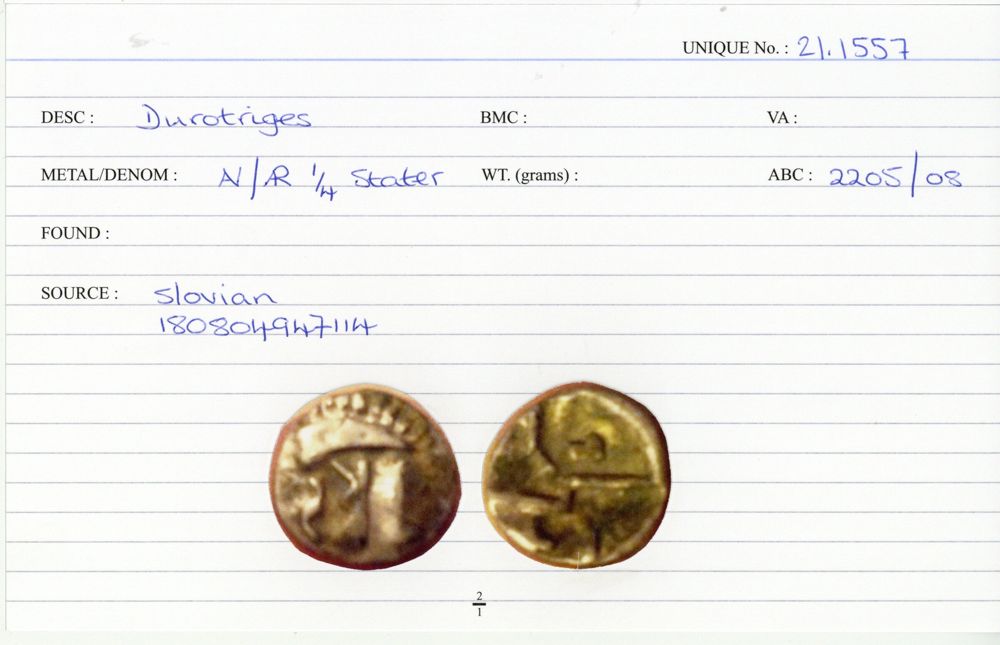 UNIQUE No. : 21.1557
DESC : Durotriges BMC : VA :
METAL/DENOM : N/R 1/4 Stater WT. (grams) : ABC : 2205/08
FOUND :
SOURCE : Slovian
180804947114
2/1